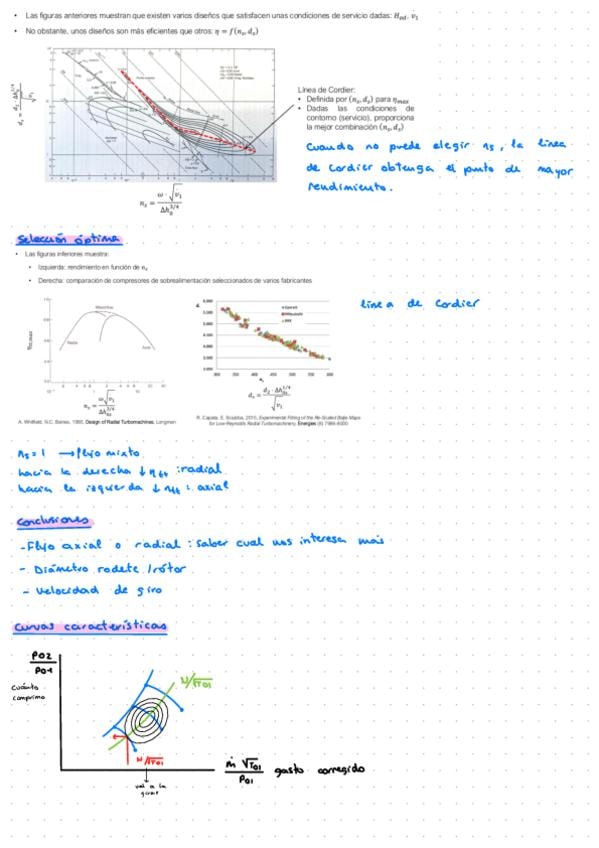 • Las figuras anteriores muestran que existen varios diseños que satisfacen unas condiciones de servicio dadas: H_ad, v̇_1
• No obstante, unos diseños son más eficientes que otros: η = f(n_s, d_s)
Línea de Cordier:
• Definida por (n_s, d_s) para η_max
• Dadas las condiciones de contorno (servicio), proporciona la mejor combinación (n_s, d_s)
d_s = d_2 · Δh_0^{1/4} / √v̇_1
n_s = ω · √v̇_1 / Δh_0^{3/4}
Cuando no puede elegir ns, la línea
de Cordier obtenga el punto de mayor
rendimiento.
Selección óptima
• Las figuras inferiores muestra:
• Izquierda: rendimiento en función de n_s
• Derecha: comparación de compresores de sobrealimentación seleccionados de varios fabricantes
Línea de Cordier
Radial
Axial
n_s = ω√v̇_1 / Δh_0s^{3/4}
d_s = d_2 · Δh_0s^{1/4} / √v̇_1
A. Whitfield, N.C. Baines, 1990, Design of Radial Turbomachines, Longman
R. Capata, E. Sciubba, 2015, Experimental Fitting of the Re-Scaled Balje Maps
for Low-Reynolds Radial Turbomachinery, Energies (8) 7986-8000
ns=1 → flujo mixto
hacia la derecha ↓ηtt :radial
hacia la izquierda ↓ηtt: axial
Conclusiones
- Flujo axial o radial: saber cual nos interesa más
- Diámetro rodete / rótor
- Velocidad de giro
Curvas características
P02/P01
Cuánto
comprimo
N/√T01
N/√T01
ṁ √T01 / P01 gasto corregido